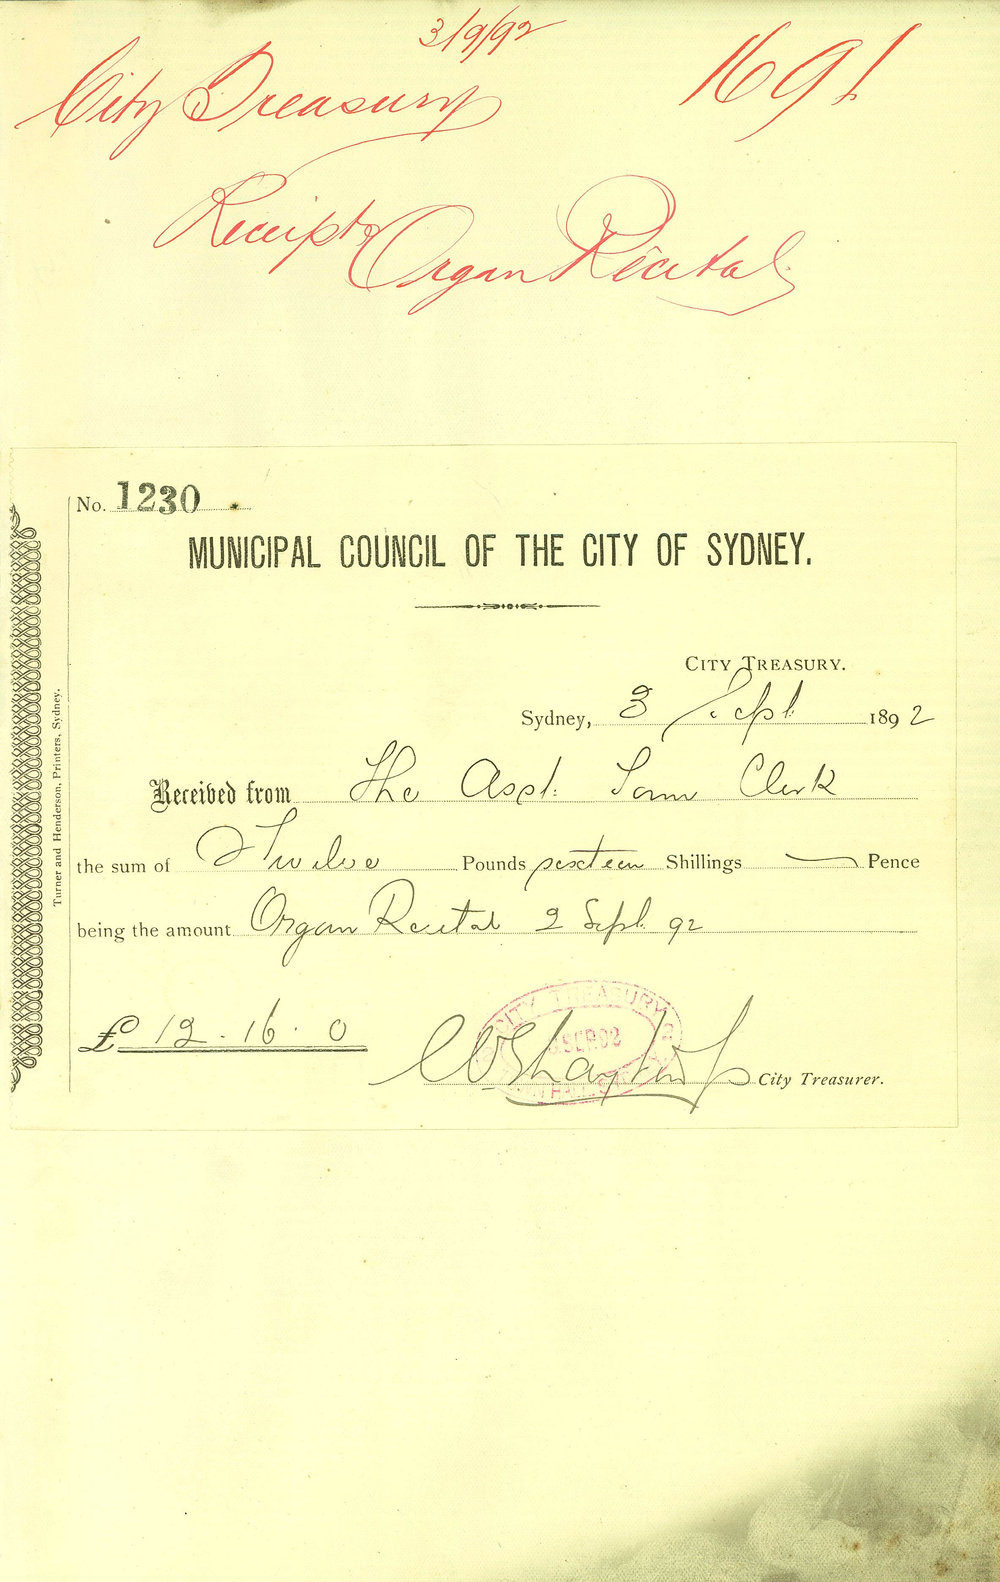 3/9/92
City Treasury 1691
Receipt
Organ Recital
No. 1230
MUNICIPAL COUNCIL OF THE CITY OF SYDNEY.
CITY TREASURY.
Sydney, 3 Sept. 1892
Received from The Asst. Town Clerk
the sum of Twelve Pounds sixteen Shillings — Pence
being the amount Organ Recital 2 Sept. 92
£ 12. 16. 0
CITY TREASURY
City Treasurer.
Turner and Henderson, Printers, Sydney.